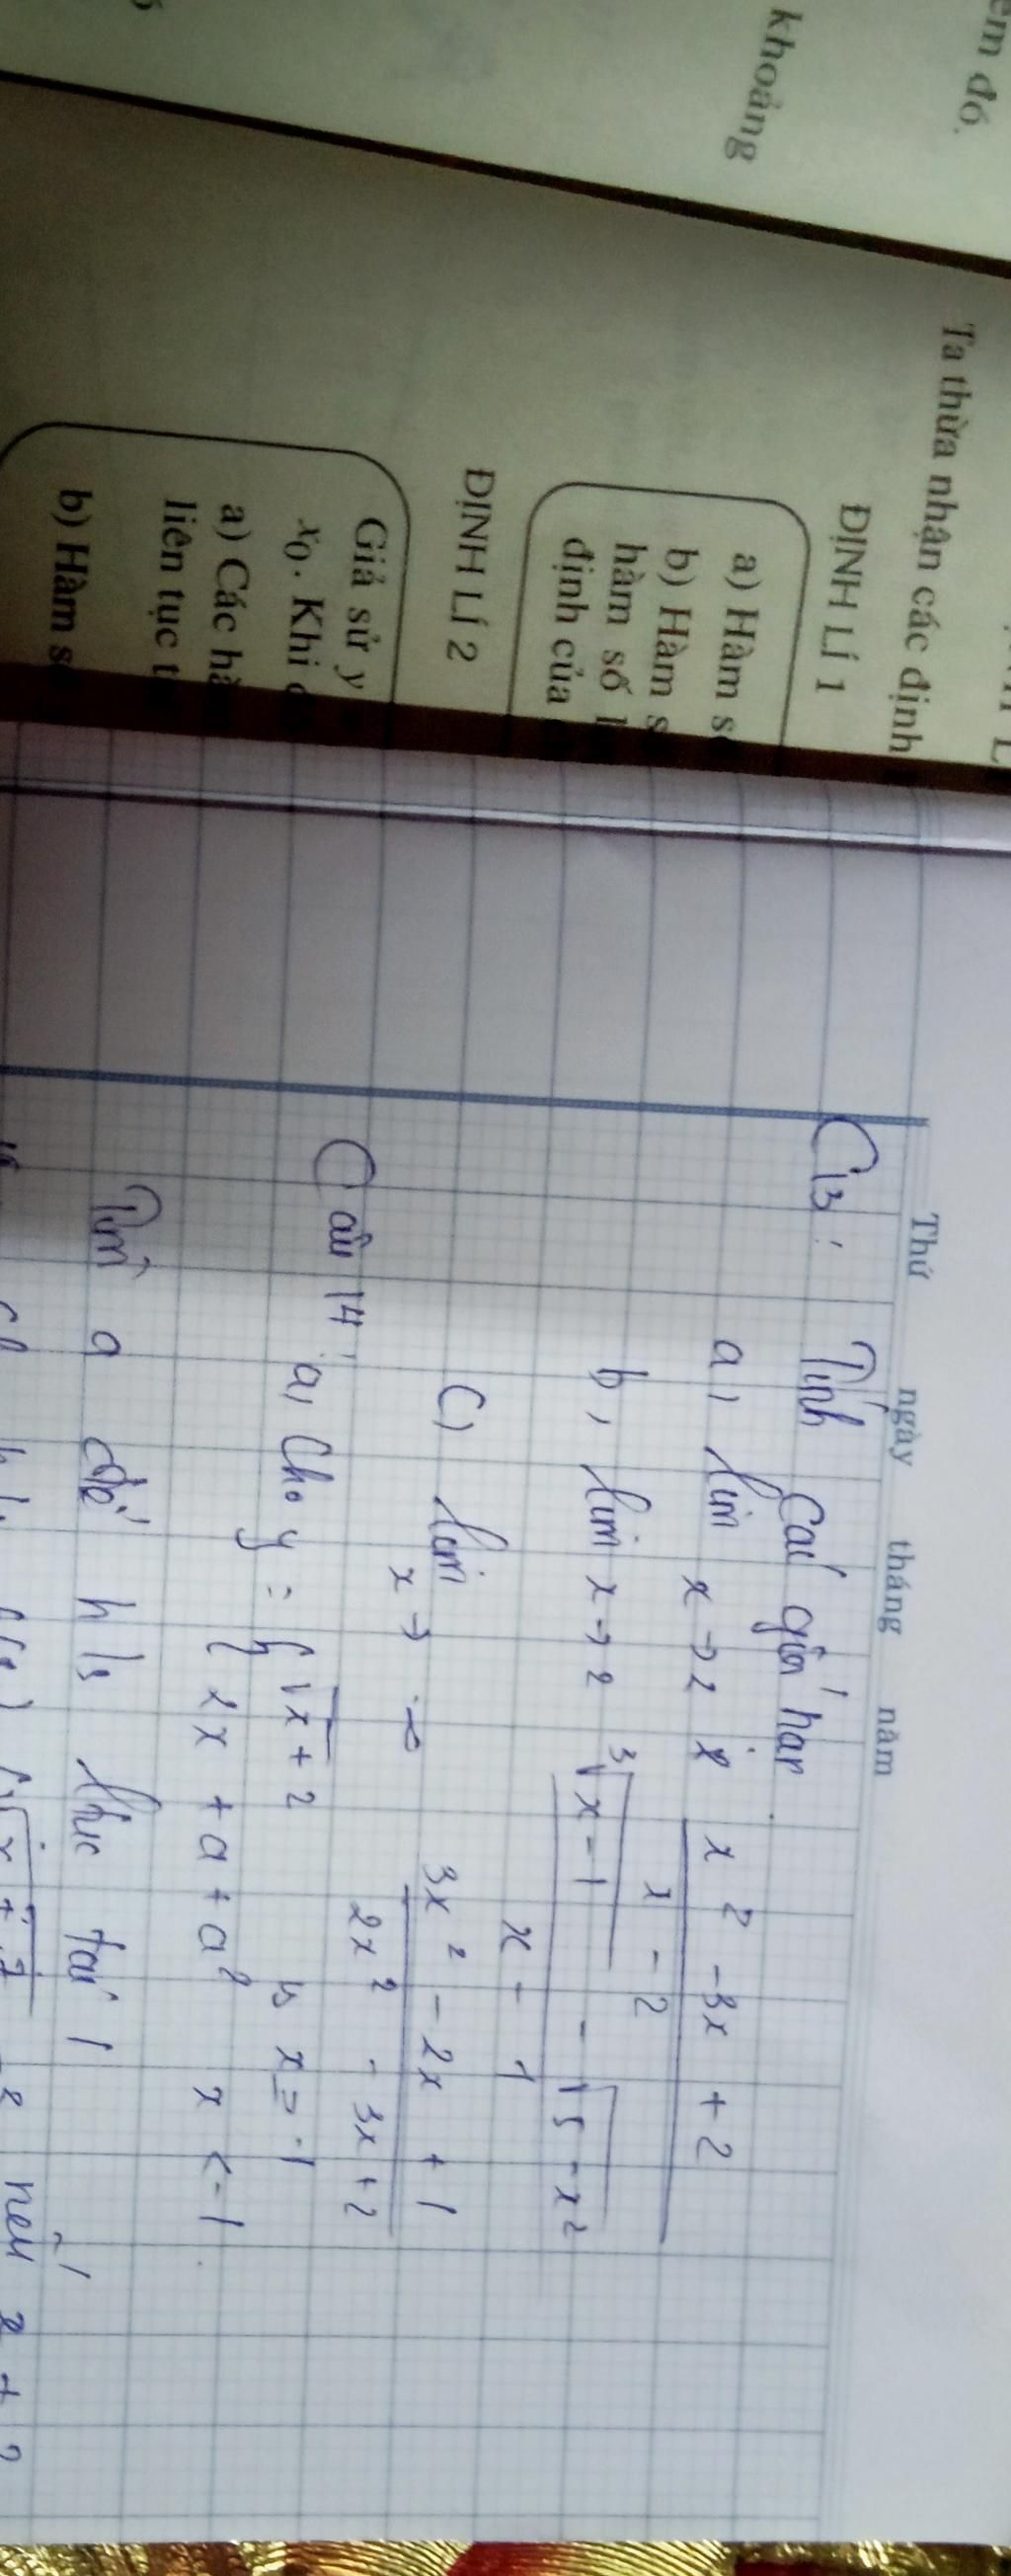 em đó.
khoảng
Ta thừa nhận các định
ĐỊNH LÍ 1
a) Hàm s
b) Hàm s
hàm số l
định của
ĐỊNH LÍ 2
Giả sử y
x₀. Khi
a) Các hà
liên tục t
b) Hàm s
Thứ ngày tháng năm
C13: Tính các giới hạn
a, lim x→2 x² -3x + 2
x - 2
b, lim x→2 ³√x-1 - √5-x²
x - 1
C, lim 3x² - 2x + 1
x → -∞ 2x² - 3x + 2
Câu 14: a, Cho y = { √x+2 x ≥ -1
2x + a + a² x < -1
Tìm a để h/s liên tục tại 1
nếu x + 2